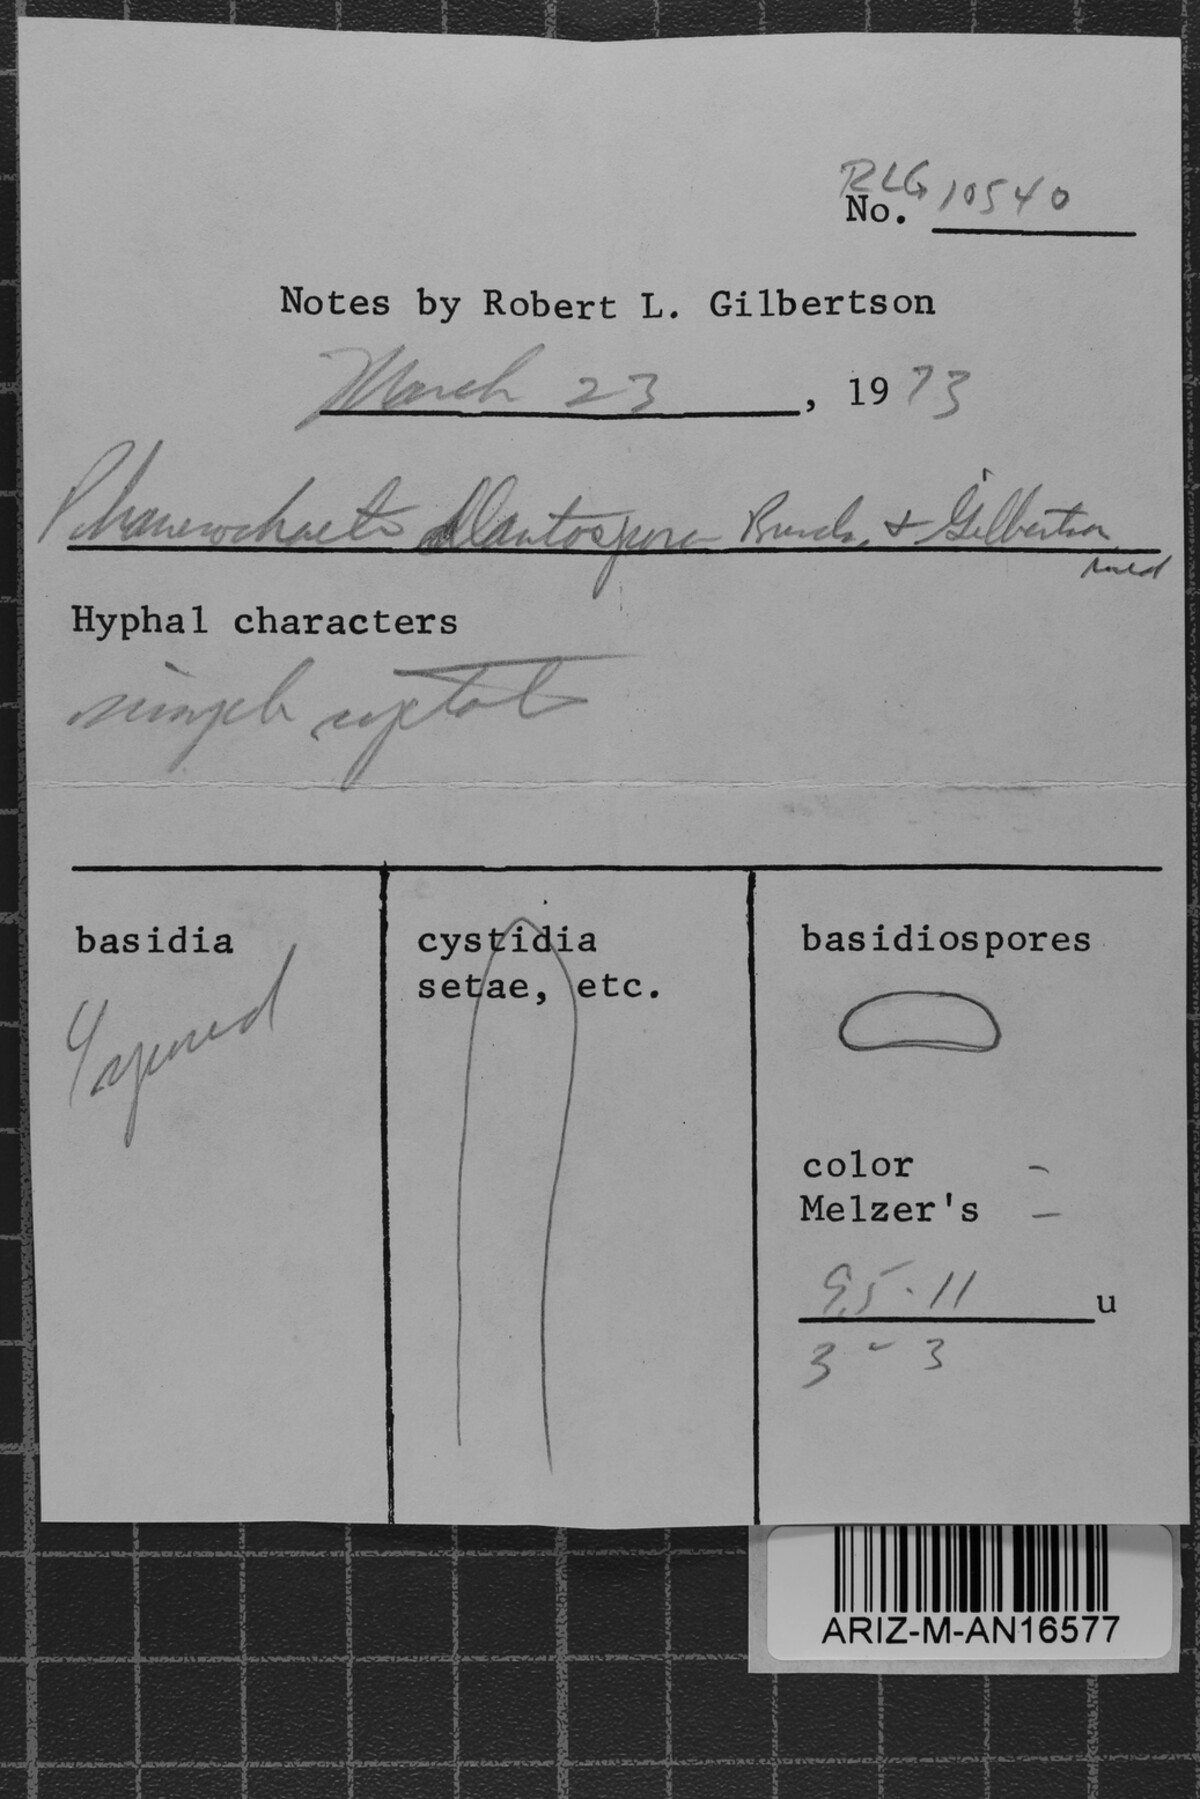 RLG
No. 10540
Notes by Robert L. Gilbertson
March 23, 1973
Phanerochaete allantospora Burds. & Gilbertson
ined
Hyphal characters
simple septate
basidia
4 spored
cystidia
setae, etc.
basidiospores
color -
Melzer's -
9.5-11 u
3-3
ARIZ-M-AN16577